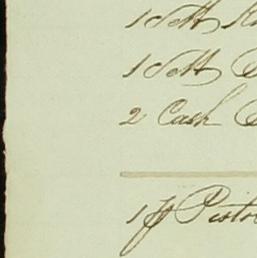 1 Sett
1 Sett
2 Cash
1 pr Pisto